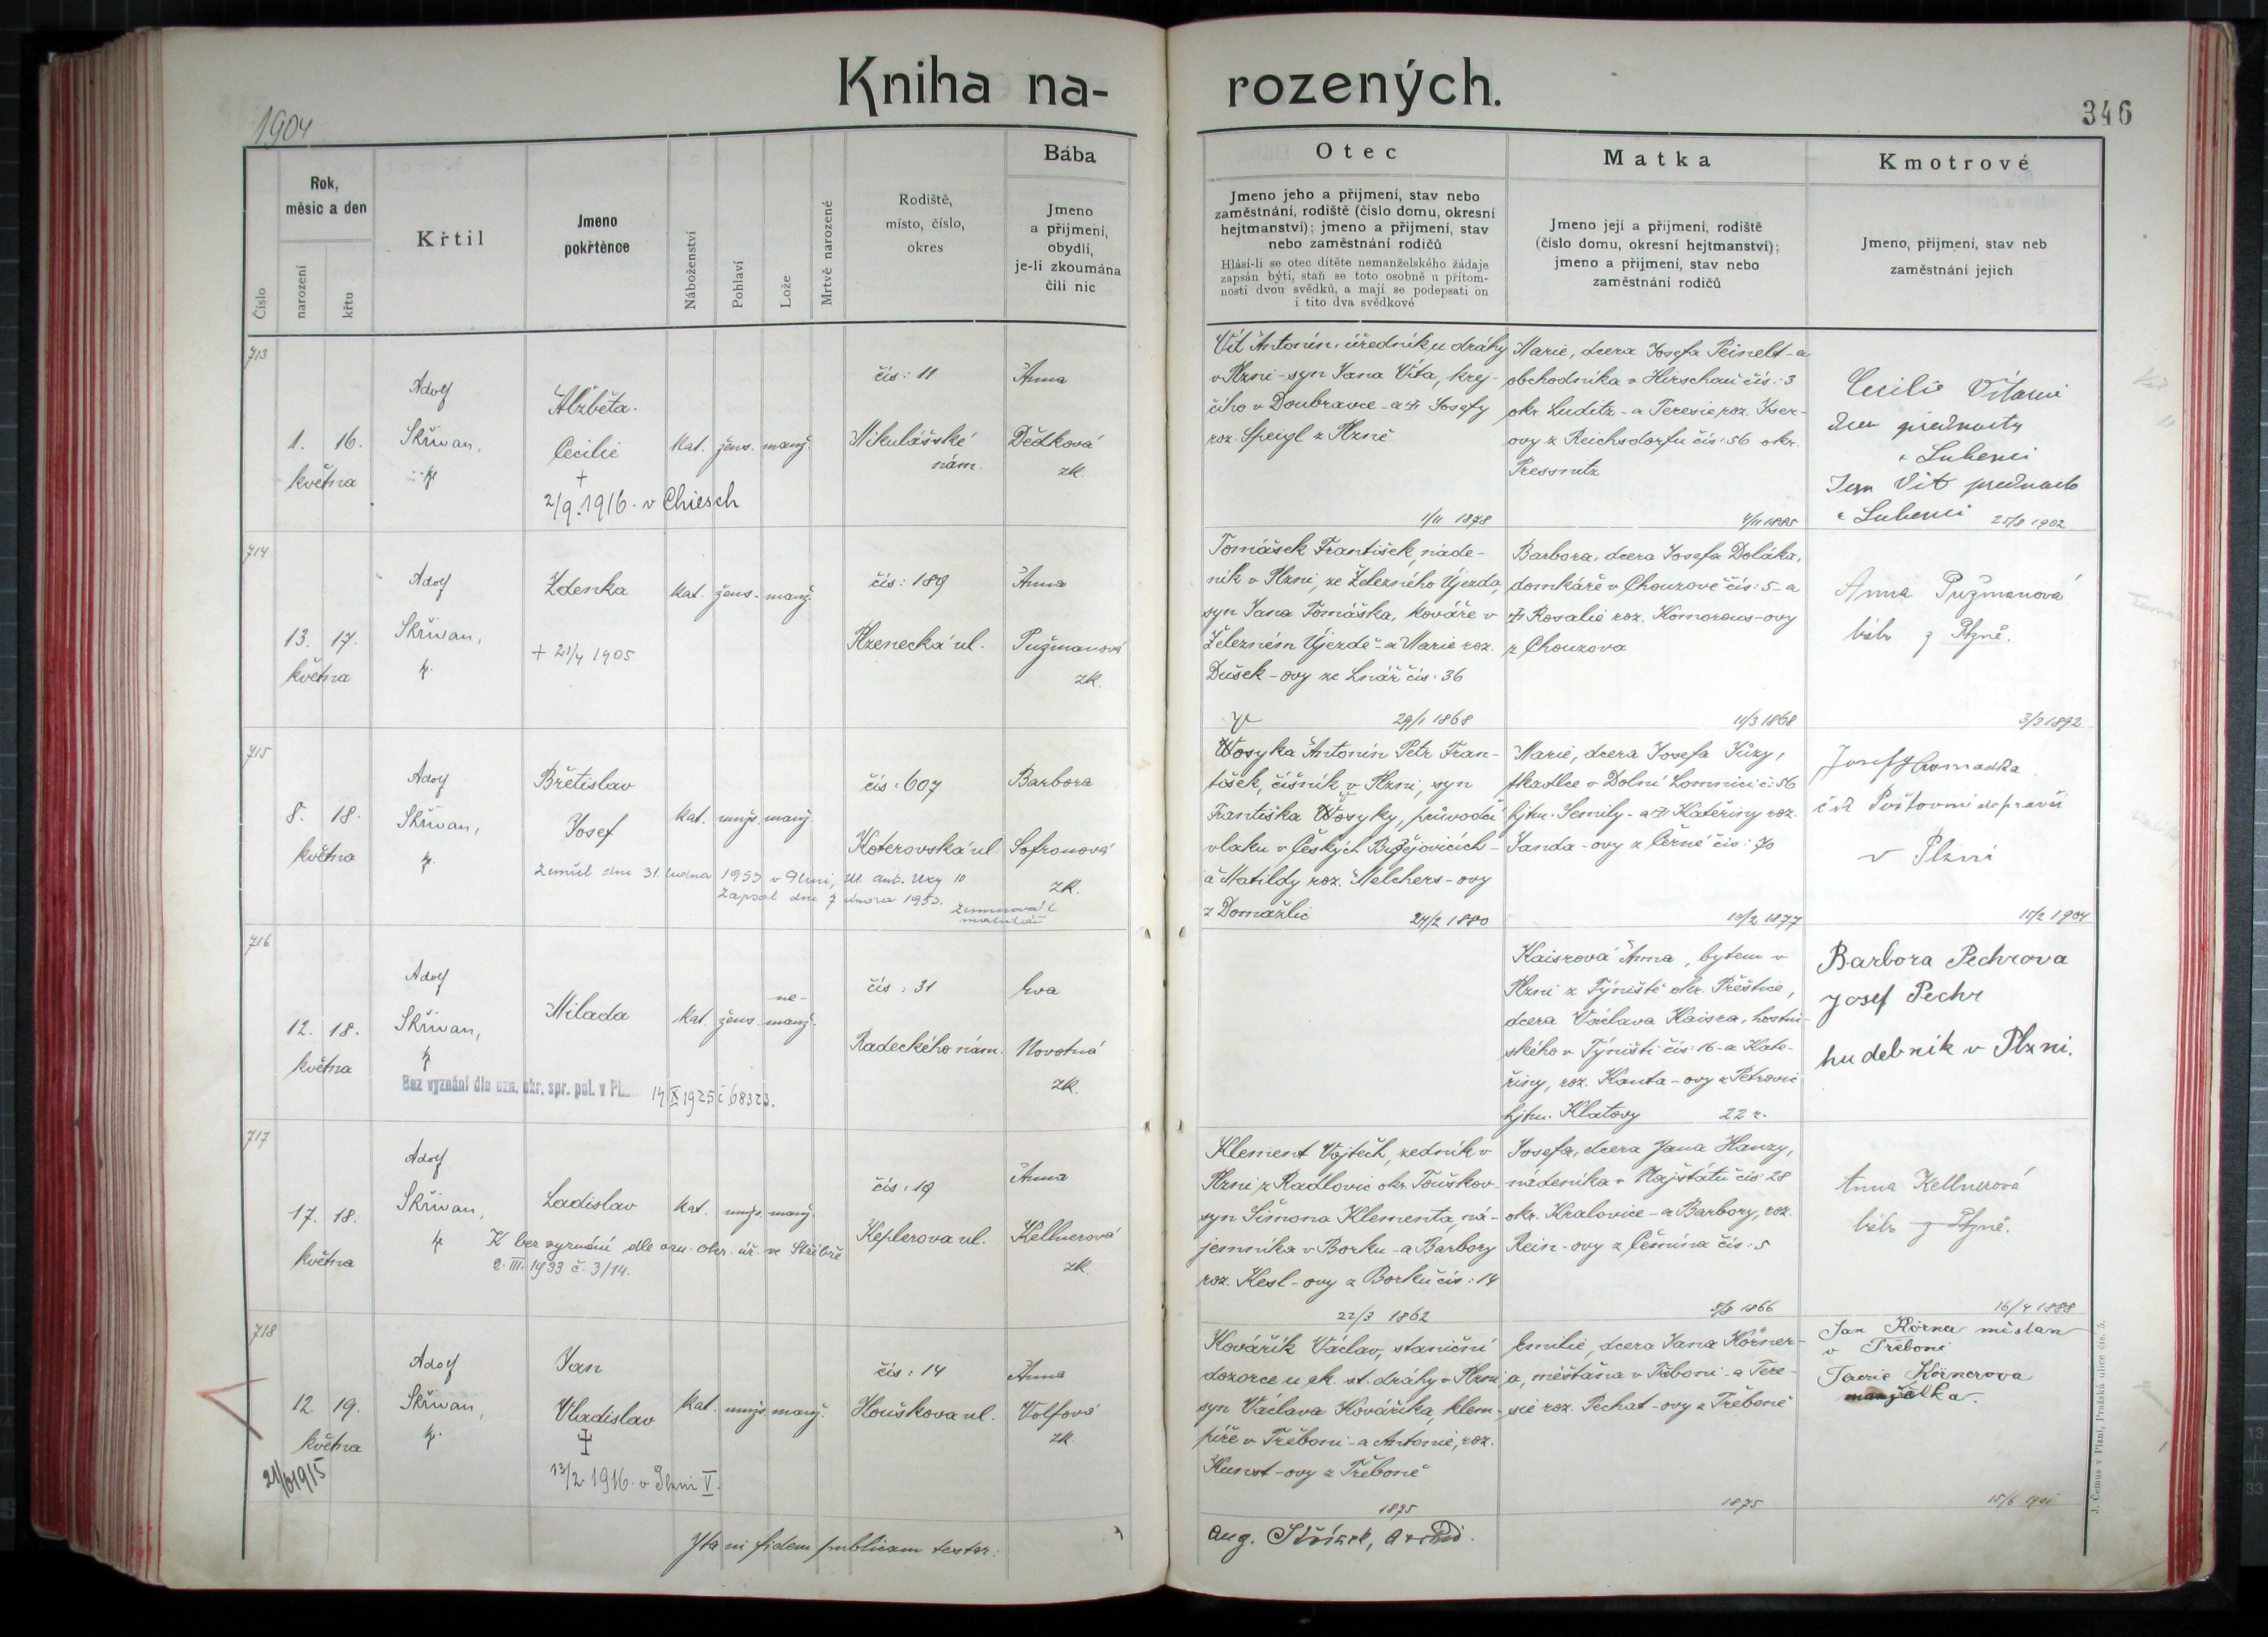 Kniha na-
rozených.
1904
346
Číslo
Rok,
měsíc a den
narození
křtu
Křtil
Jmeno
pokřtěnce
Náboženství
Pohlaví
Lože
Mrtvě narozené
Rodiště,
místo, číslo,
okres
Bába
Jmeno
a příjmení,
obydlí,
je-li zkoumána
čili nic
Otec
Jmeno jeho a příjmení, stav nebo
zaměstnání, rodiště (číslo domu, okresní
hejtmanství); jmeno a příjmení, stav
nebo zaměstnání rodičů
Hlásí-li se otec dítěte nemanželského žádaje
zapsán býti, staň se toto osobně u přítom-
nosti dvou svědků, a mají se podepsati on
i tito dva svědkové
Matka
Jmeno její a příjmení, rodiště
(číslo domu, okresní hejtmanství);
jmeno a příjmení, stav nebo
zaměstnání rodičů
Kmotrové
Jmeno, příjmení, stav neb
zaměstnání jejich
713
1. 16.
května
Adolf
Skřivan,
Alžběta
Cecilie
+
2/9. 1916. v Chiesch
kat. žens. manž.
čís: 11
Mikulášské
nám.
Anna
Dědková
zk.
Vít Antonín, úředník u dráhy
v Plzni - syn Jana Víta, krej-
čího v Doubravce - a Josefy
roz. Speigl z Plzně
1/11 1878
Marie, dcera Josefa Peinelt-a
obchodníka v Hirschau čís: 3
okr. Luditz - a Teresie roz. Iser-
ovy z Reichsdorfu čís: 56 okr.
Pressnitz
4/11 1885
Cecilie Vítová
v Lubenci
Jan Vít
v Lubenci 25/8 1902
714
13. 17.
května
Adolf
Skřivan,
Zdenka
+ 21/4 1905
kat. žens. manž.
čís: 189
Plzenecká ul.
Anna
Pužmanová
zk.
Tomášek František, náde-
ník v Plzni, ze Železného Újezda,
syn Jana Tomáška, kováře v
Železném Újezdě - a Marie roz.
Dušek-ovy ze Lnář čís. 36
29/1 1868
Barbora, dcera Josefa Doláka,
domkáře v Chouzově čís: 5 - a
Rosalie roz. Komorous-ovy
z Chouzova
11/3 1868
Anna Pužmanová
bába z Plzně.
3/3 1892
715
8. 18.
května
Adolf
Skřivan,
Břetislav
Josef
kat. mužs. manž.
čís: 607
Koterovská ul.
Barbora
Sofronová
zk.
Zemřel dne 31. ledna 1953 v Plzni, Ul. Ant. Uxy 10
Zapsal dne 7 února 1953.
Wosyka Antonín Petr Fran-
tišek, číšník v Plzni, syn
Františka Wosyky, průvodčí
vlaku v Českých Budějovicích -
a Matildy roz. Melchers-ovy
z Domažlic 24/2 1880
Marie, dcera Josefa Jůzy,
tkadlce v Dolní Lomnici č: 56
hjtm. Semily - a Kateřiny roz.
Janda-ovy z Černé čís: 70
10/2 1877
Josef Hromadka
v Plzni
15/2 1904
716
12. 18.
května
Adolf
Skřivan,
Milada
kat. žens. ne-
manž.
čís: 31
Radeckého nám.
Eva
Novotná
zk.
Bez vyznání dle ozn. okr. spr. pol. v Pl 14 X 1925 č 68323.
Kaisrová Anna, bytem v
Plzni z Týniště okr. Přeštice,
dcera Václava Kaisra, hostin-
ského v Týništi čís: 16 - a Kate-
řiny, roz. Kanta-ovy z Petrovic
hjtm. Klatovy 22 r.
Barbora Pechrova
Josef Pechr
hudebník v Plzni.
717
17. 18.
května
Adolf
Skřivan,
Ladislav
kat. mužs. manž.
čís: 19
Keplerova ul.
Anna
Kellnerová
zk.
K bez vyznání dle ozn. okr. úř. ve Stříbře
2. III. 1933 č. 3/14.
Klement Vojtěch, zedník v
Plzni z Radlovic okr. Touškov
syn Šimona Klementa, ná-
jemníka v Borku - a Barbory
roz. Kesl-ovy z Borku čís: 14
22/3 1862
Josefa, dcera Jana Hanzy,
nádeníka v Najštátu čís 28
okr. Kralovice - a Barbory, roz.
Rein-ovy z Čemína čís: 5
5/8 1866
Anna Kellnerová
bába z Plzně.
16/4 1888
718
12. 19.
května
21/6 1915
Adolf
Skřivan,
Jan
Vladislav
13/2. 1916. v Plzni V.
kat. mužs. manž.
čís: 14
Houškova ul.
Anna
Volfová
zk.
Kovářík Václav, staniční
dozorce u ck. st. dráhy v Plzni
syn Václava Kováříka, klem-
píře v Třeboni - a Antonie, roz.
Kunst-ovy z Třeboně
1875
Emilie, dcera Jana Körner-
a, měšťana v Třeboni - a Tere-
sie roz. Pechat-ovy z Třeboně
1875
Jan Körner měšťan
v Třeboni
Körnerova
manželka.
Ita in fidem publicam testor:
Aug.
J. Čemus v Plzni, Pražská ulice čís. 5.